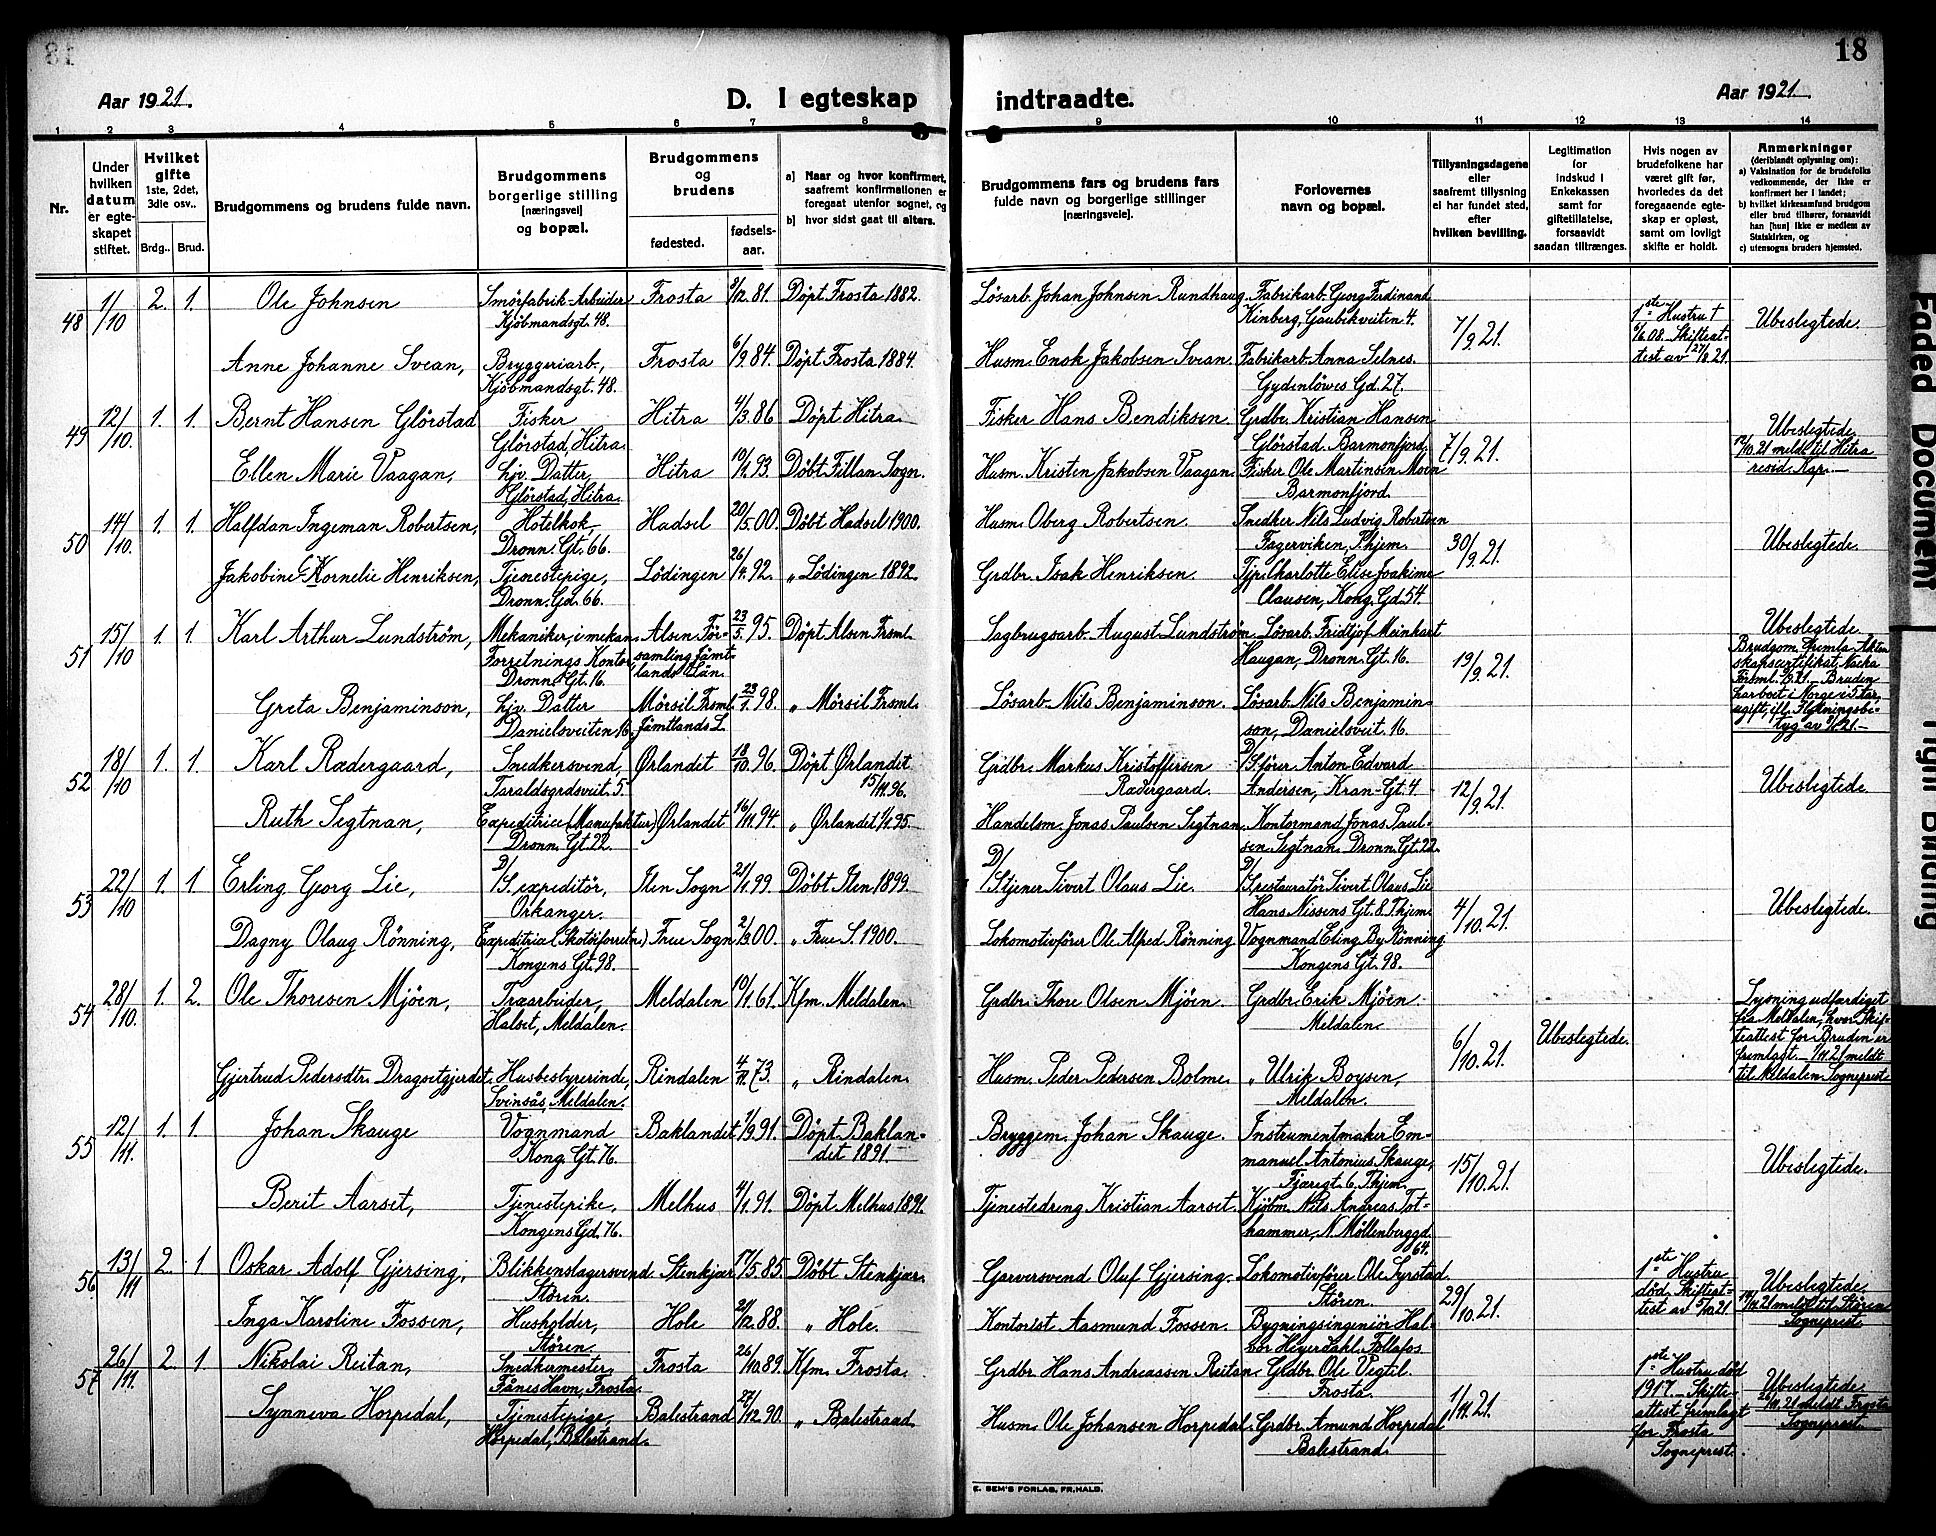 18
Aar 1921.
D. I egteskap indtraadte.
Aar 1921.
1 2 3 4 5 6 7 8 9 10 11 12 13 14
Nr.
Under hvilken datum er egteskapet stiftet.
Hvilket gifte 1ste, 2det, 3die osv..
Brdg.. Brud.
Brudgommens og brudens fulde navn.
Brudgommens borgerlige stilling [næringsvei] og bopæl.
Brudgommens og brudens
fødested. fødselsaar.
a] Naar og hvor konfirmert, saafremt konfirmationen er foregaat utenfor sognet, og
b] hvor sidst gaat til alters.
Brudgommens fars og brudens fars fulde navn og borgerlige stillinger [næringsveie].
Forlovernes navn og bopæl.
Tillysningsdagene eller saafremt tillysning ei har fundet sted, efter hvilken bevilling.
Legitimation for indskud i Enkekassen samt for giftetillatelse, forsaavidt saadan tiltrænges.
Hvis nogen av brudefolkene har været gift før, hvorledes da det foregaaende egteskap er opløst, samt om lovligt skifte er holdt.
Anmerkninger
(deriblandt oplysning om):
a) Vaksination for de brudefolks vedkommende, der ikke er konfirmert her i landet;
b) hvilket kirkesamfund brudgom eller brud tilhører, forsaavidt han [hun] ikke er medlem av Statskirken, og
c) utensogns bruders hjemsted.
48 1/10 2. 1. Ole Johnsen Smörfabrik-Arbeider Kjöbmandsgt. 48. Frosta 81. Döpt Frosta 1882. Lösarb. Johan Johnsen Rundhaug Fabrikarb. Georg Ferdinand Kinberg, Gaubekveiten 4. 7/9 21. 1ste Hustru † 08. Skifteattest av 21. Ubeslegtede.
Anne Johanne Svean, Bryggeriarb., Kjöbmandsgt. 48. Frosta 6/9 84. Döpt Frosta 1884. Husm. Enok Jakobsen Svean. Fabrikarb. Anna Selnes. Gydenlöves Gd. 27.
49 12/10. 1. 1. Bernt Hansen Glörstad Fisker Glörstad, Hitra. Hitra 4/3 86 Döpt Hitra. Fisker Hans Bendiksen. Grdbr. Kristian Hansen Glörstad. Barmonfjord. 7/9 21. Ubeslegtede. 12/10. 21 meldt til Hitra resid. Kap.
Ellen Marie Vaagan, hjv. Datter, Glörstad, Hitra. Hitra 10/1 93. Döbt Fillan Sogn. Husm. Kristen Jakobsen Vaagan. Fisker Ole Martinsen Moen Barmonfjord.
50 14/10. 1. 1. Halfdan Ingeman Robertsen, Hotelkok Dronn. Gt. 66. Hadsel 20/5 00. Döbt Hadsel 1900. Husm. Oberg Robertsen. Snedker Nils Ludvig Robertsen Fagerviken, Thjem. 30/9 21. Ubeslegtede.
Jakobine Kornelie Henriksen, Tjenestepige, Dronn. Gd. 66. Lödingen 92. „ Lödingen 1892. Grdbr. Isak Henriksen. Tjp. Charlotte Elise Joakime Clausen, Kong. Gd. 54.
51 15/10 1. 1. Karl Arthur Lundström, Mekaniker, i mekan. Forretnings Kontor Dronn. Gt. 16. Alsen Församling Jämtlands Län. 23/5. 95. Döpt Alsen Frsml. Sagbrugsarb. August Lundström Lösarb. Fridtjof Meinhart Haugan, Dronn. Gt. 16. 19/9 21. Ubeslegtede. Brudgom. fremla Äktenskapscertifikat, Bruden har boet i Norge i 5 Aar, ugift, ifl. Flytningsbetyg av 21.
Greta Benjaminson, hjv. Datter Danielsveiten 16. Mörsil Frsml. Jämtlands L. 23/1. 98. „ Mörsil Frsml. Lösarb. Nils Benjaminson. Lösarb. Nils Benjaminson, Danielsveit. 16.
52 18/10 1. 1. Karl Rædergaard, Snedkersvend, Taraldsgrdsveit. 5. Ørlandet 18/10. 96. Döpt Ørlandet 15/11. 96. Grdbr. Markus Kristoffersen Rædergaard. D/S. förer Anton Edvard Andersen, Kran-Gt. 4 12/9 21. Ubeslegtede.
Ruth Sigtnan, Expeditrice (Manufaktur) Dronn. Gt. 22. Ørlandet 16/11. 94. „ Ørlandet 95. Handelsm. Jonas Paulsen Sigtnan. Kontormand Jonas Paulsen Sigtnan. Dronn. Gt. 22.
53 22/10 1. 1 Erling Georg Lie, D/S. expeditör, Orkanger. Ilen Sogn 21/1. 99. Döbt Ilen 1899. D/S tjener Sivert Olaus Lie. D/S. restauratör Sivert Olaus Lie Hans Nissens Gt. 8. Thjem. 4/10. 21. Ubeslegtede.
Dagny Olaug Rönning, Expeditrice (Skotöiforretn.) Kongens Gt. 98. Frue Sogn 2/3 00. „ Frue S. 1900. Lokomotivförer Ole Alfred Rönning Vognmand Eling By Rönning Kongens Gt. 98.
54 28/10. 1. 2. Ole Thoresen Mjöen, Træarbeider, Halset, Meldalen. Meldalen 10/1 61. Kfm. Meldalen. Grdbr. Thore Olsen Mjöen. Grdbr. Erik Mjöen. Meldalen. 6/10. 21. Ubeslegtede. Lysning udfærdiget fra Meldalen, hvor Skifteattest for Bruden er fremlagt. 1/11. 21 meldt til Meldalen Sogneprest.
Gjertrud Pedersdtr. Dragsetgjerdet. Husbestyrerinde, Svinsås, Meldalen. Rindalen 4/11. 73. „ Rindalen. Husm. Peder Pedersen Bolme. „ Ulrik Boysen, Meldalen.
55 12/11. 1. 1. Johan Skauge Vognmand Kong. Gt. 76. Baklandet 1/9 91. Döpt Baklandet 1891. Bryggem. Johan Skauge. Instrumentmaker Emmanuel Antonius Skauge, Fjæregt. 6. Thjem. 15/10. 21. Ubeslegtede.
Berit Aarset, Tjenestepike, Kongens Gd. 76. Melhus 4/1. 91. Döpt Melhus 1891. Tjenestedreng Kristian Aarset. Kjöbm. Nils Andreas Tothammer, N. Möllenberggd. 64.
56 13/11 2. 1 Oskar Adolf Gjersing, Blikkenslagersvend Stören. Stenkjær 17/5. 85. Döbt Stenkjær. Garversvend Oluf Gjersing. Lokomotivförer Ole Syrstad. Stören. 29/10. 21. 1ste Hustru död. Skifteattest av 5/10 21. Ubeslegtede. 21 meldt til Stören Sogneprest.
Inga Karoline Fossen, Husholder, Stören. Hole 21/12 88. „ Hole. Kontorist Aasmund Fossen. Bygningsingeniör Halbor Heyerdahl. Follafos
57 26/11. 2. 1 Nikolai Reitan, Snedkermester, Fånes Havn, Frosta. Frosta 26/10. 89. Kfm. Frosta. Grdbr. Hans Andreassen Reitan. Gldbr. Ole Vigtil. Frosta. 1/11. 21. 1ste Hustru död 1917. Skifteattest fremlagt for Frosta Sogneprest. Ubeslegtede. 26/11. 21 meldt Frosta Sogneprest
Synneva Horpedal, Tjenestepige, Horpedal, Balestrand. Balestrand 27/12. 90. „ Balestrand. Husm. Ole Johansen Horpedal. Grdbr. Amund Horpedal Balestrand.
E. SEM'S FORLAG, FR.HALD.
Faded Document
Tight Binding